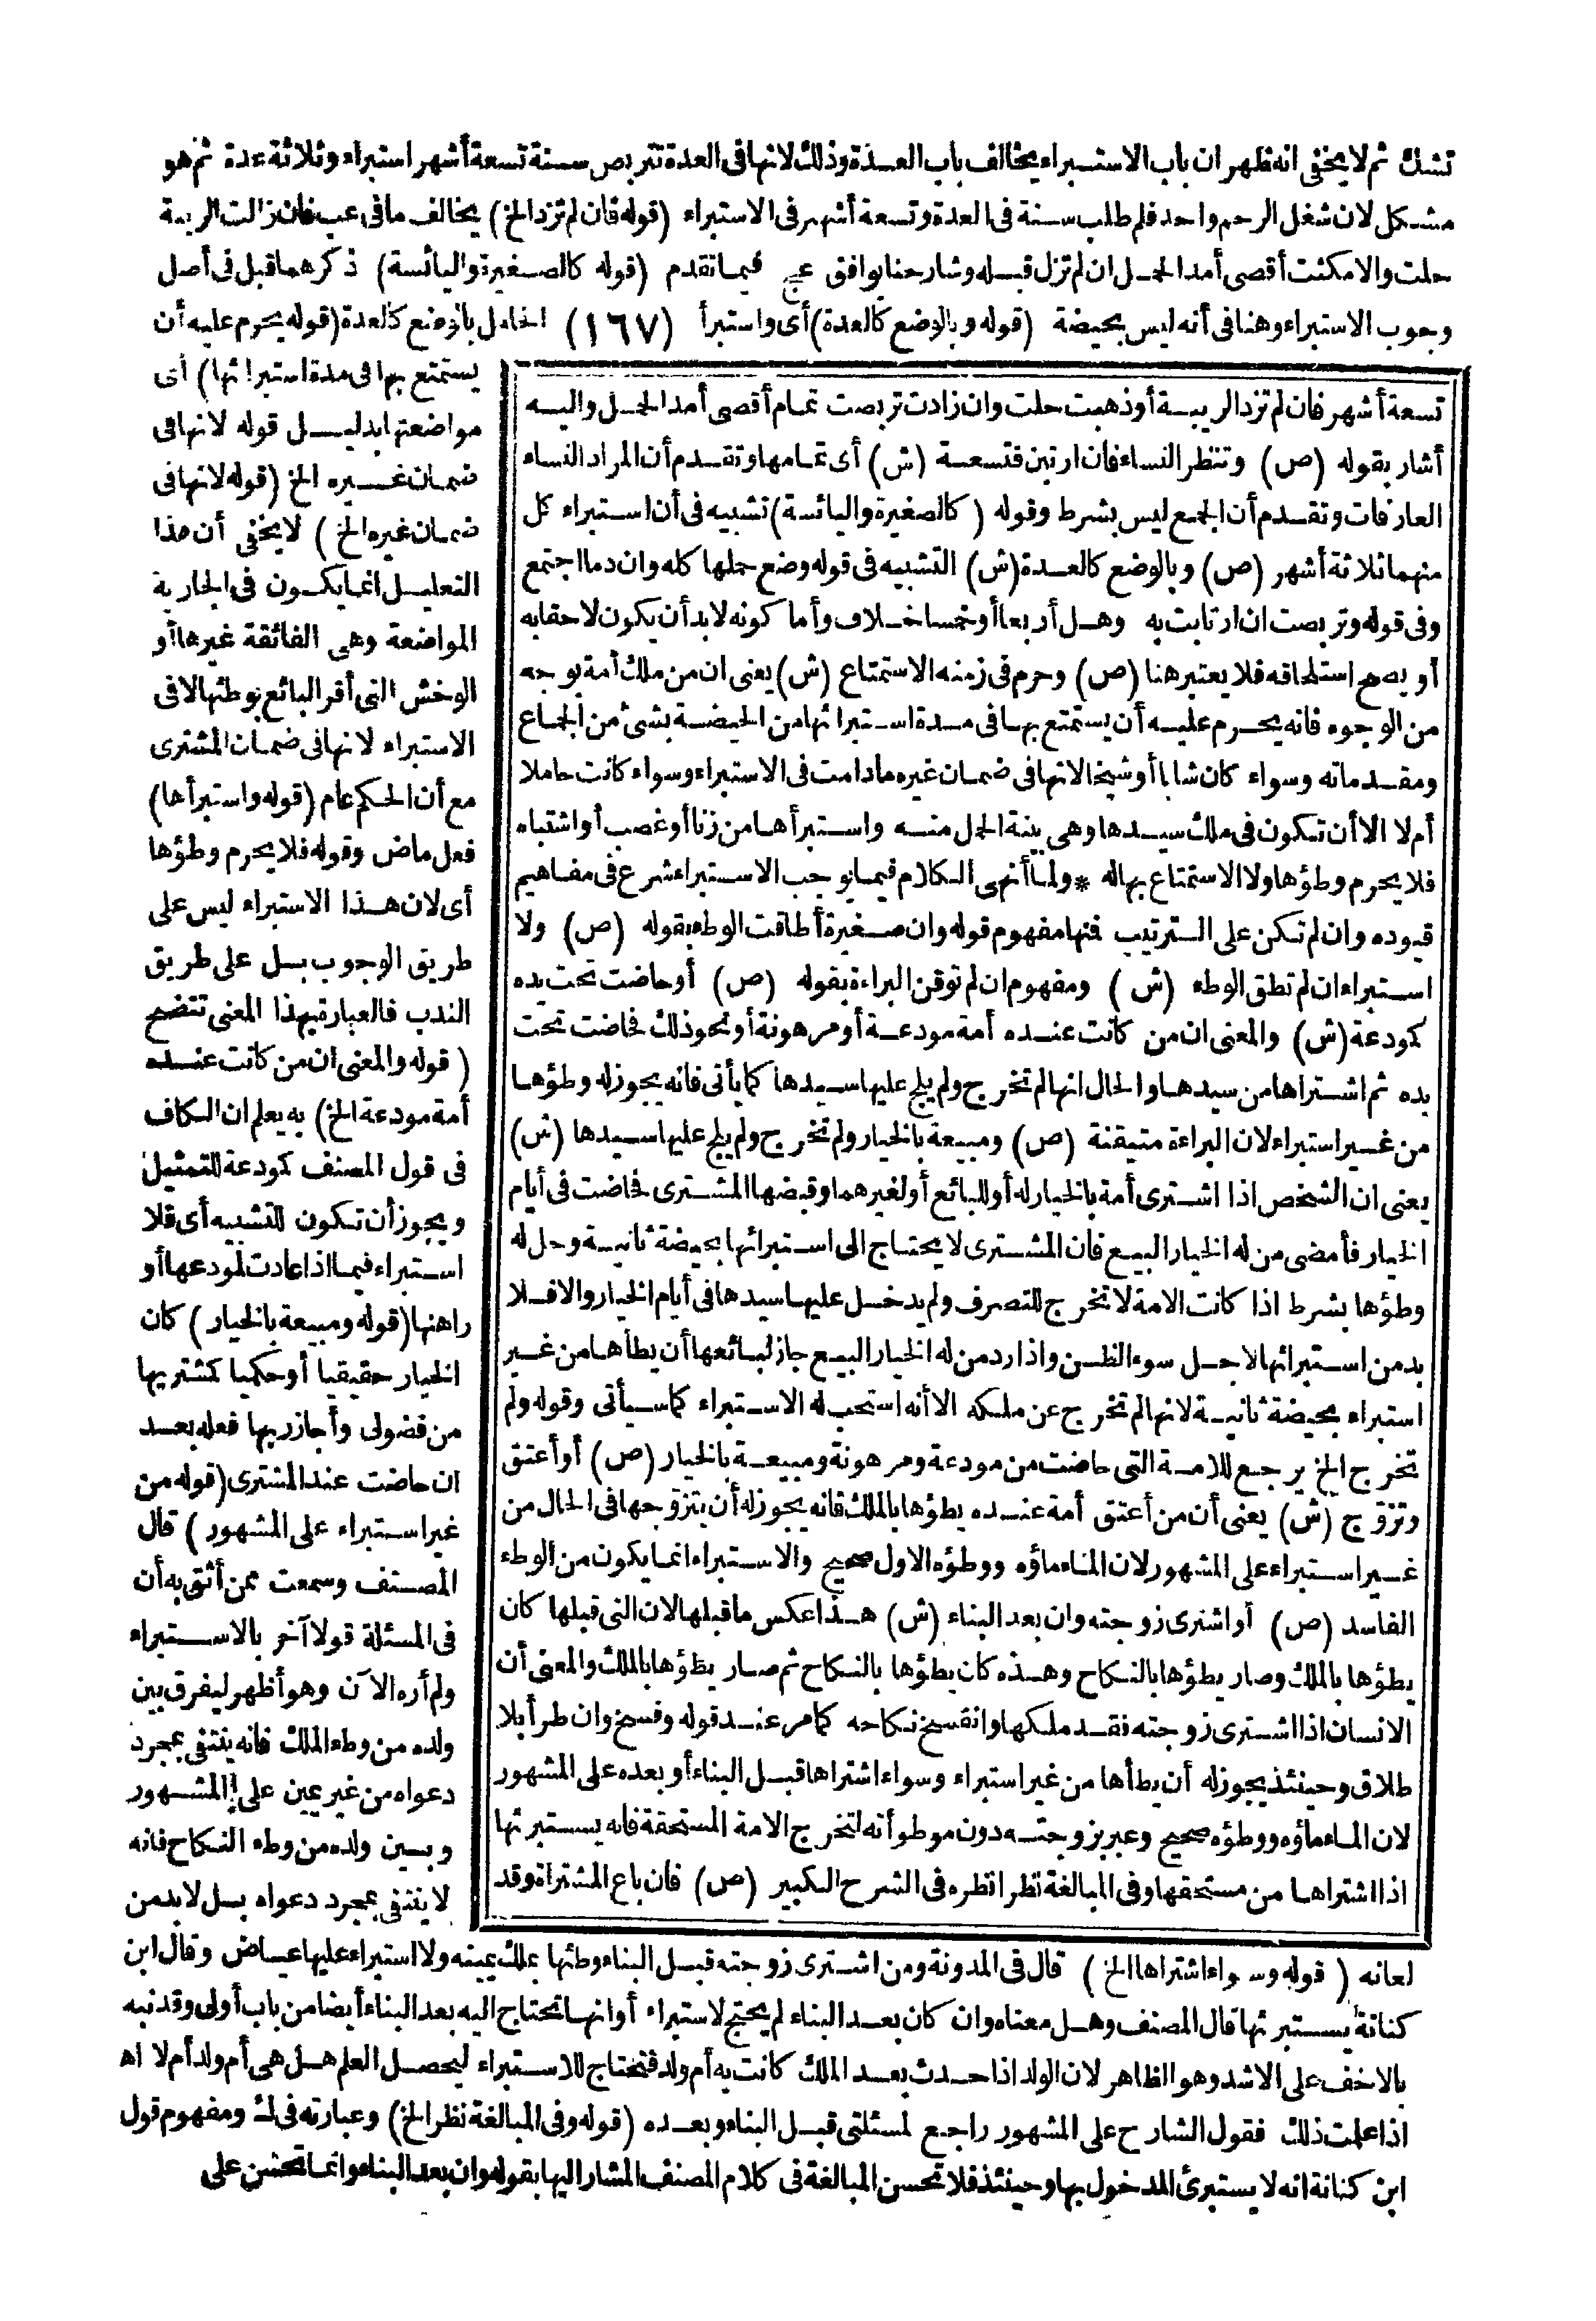 تشك ثم لا يخفى انه ظهر ان باب الاستبراء يخالف باب العدة وذلك لانها فى العدة تتربص سنة تسعة أشهر استبراء وثلاثة عدة ثم هو
مشكل لان شغل الرحم واحد فلم طلب سنة فى العدة وتسعة أشهر فى الاستبراء (قوله فان لم تزد الخ) يخالف ما فى عب فان زالت الريبة
حلت والا مكثت أقصى أمد الحمل ان لم تزل قبله وشارحنا يوافق عج فيما تقدم (قوله كالصغيرة واليائسة) ذكرهما قبل فى أصل
وجوب الاستبراء وهنا فى أنه ليس بحيضة (قوله وبالوضع كالعدة) أى واستبرأ (١٦٧) الحامل بالوضع كالعدة (قوله يحرم عليه أن
تسعة أشهر فان لم تزد الريبة أو ذهبت حلت وان زادت تربصت تمام أقصى أمد الحمل واليه
أشار بقوله (ص) وتنظر النساء فان ارتبن فتسعة (ش) أى تمامها وتقدم أن المراد النساء
العارفات وتقدم أن الجمع ليس بشرط وقوله (كالصغيرة واليائسة) تشبيه فى أن استبراء كل
منهما ثلاثة أشهر (ص) وبالوضع كالعدة (ش) التشبيه فى قوله وضع حملها كله وان دما اجتمع
وفى قوله وتربصت ان ارتابت به وهل أربعا أو خمسا خلاف وأما كونه لا بد أن يكون لاحقا به
أو يصح استلحاقه فلا يعتبر هنا (ص) وحرم فى زمنه الاستمتاع (ش) يعنى ان من ملك أمة بوجه
من الوجوه فانه يحرم عليه أن يستمتع بها فى مدة استبرائها من الحيضة بشئ من الجماع
ومقدماته وسواء كان شابا أو شيخا لانها فى ضمان غيره ما دامت فى الاستبراء وسواء كانت حاملا
أم لا الا أن تكون فى ملك سيدها وهى بينة الحمل منه واستبرأها من زنا أو غصب أو اشتباه
فلا يحرم وطؤها ولا الاستمتاع بها له * ولما أنهى الكلام فيما يوجب الاستبراء شرع فى مفاهيم
قيوده وان لم تكن على الترتيب فنها مفهوم قوله وان صغيرة أطاقت الوطء بقوله (ص) ولا
استبراء ان لم تطق الوطء (ش) ومفهوم ان لم توقن البراءة بقوله (ص) أو حاضت تحت يده
كمودعة (ش) والمعنى ان من كانت عنده أمة مودعة أو مرهونة أو نحو ذلك فحاضت تحت
يده ثم اشتراها من سيدها والحال انها لم تخرج ولم يلج عليها سيدها كما يأتى فانه يجوز له وطؤها
من غير استبراء لان البراءة متيقنة (ص) ومبيعة بالخيار ولم تخرج ولم يلج عليها سيدها (ش)
يعنى ان الشخص اذا اشترى أمة بالخيار له أو للبائع أو لغيرهما وقبضها المشترى فحاضت فى أيام
الخيار فأمضى من له الخيار البيع فان المشترى لا يحتاج الى استبرائها بحيضة ثانية وحل له
وطؤها بشرط اذا كانت الامة لا تخرج للتصرف ولم يدخل عليها سيدها فى أيام الخيار والا فلا
بد من استبرائها لاجل سوء الظن واذا رد من له الخيار البيع جاز لبائعها أن يطأها من غير
استبراء بحيضة ثانية لانها لم تخرج عن ملكه الا أنه استحب له الاستبراء كما سيأتى وقوله ولم
تخرج الخ يرجع للامة التى حاضت من مودعة ومرهونة ومبيعة بالخيار (ص) أو أعتق
وتزوج (ش) يعنى أن من أعتق أمة عنده يطؤها بالملك فانه يجوز له أن يتزوجها فى الحال من
غير استبراء على المشهور لان الماء ماؤه ووطؤه الاول صحيح والاستبراء انما يكون من الوطء
الفاسد (ص) أو اشترى زوجته وان بعد البناء (ش) هذا عكس ما قبلها لان التى قبلها كان
يطؤها بالملك وصار يطؤها بالنكاح وهذه كان يطؤها بالنكاح ثم صار يطؤها بالملك والمعنى أن
الانسان اذا اشترى زوجته فقد ملكها وانفسخ نكاحه كما مر عند قوله وفسخ وان طرأ بلا
طلاق وحينئذ يجوز له أن يطأها من غير استبراء وسواء اشتراها قبل البناء أو بعده على المشهور
لان الماء ماؤه ووطؤه صحيح وعبر بزوجته دون موطوأته لتخرج الامة المستحقة فانه يستبرئها
اذا اشتراها من مستحقها وفى المبالغة نظر انظره فى الشرح الكبير (ص) فان باع المشتراة وقد
يستمتع بها فى مدة استبرائها) أى
مواضعتها بدليل قوله لانها فى
ضمان غيره الخ (قوله لانها فى
ضمان غيره الخ) لا يخفى أن هذا
التعليل انما يكون فى الجارية
المواضعة وهى الفائقة غيرها أو
الوخش التى أقر البائع بوطئها لا فى
الاستبراء لانها فى ضمان المشترى
مع أن الحكم عام (قوله واستبرأها)
فعل ماض وقوله فلا يحرم وطؤها
أى لان هذا الاستبراء ليس على
طريق الوجوب بل على طريق
الندب فالعبارة بهذا المعنى تتضح
(قوله والمعنى ان من كانت عنده
أمة مودعة الخ) به يعلم ان الكاف
فى قول المصنف كمودعة للتمثيل
ويجوز أن تكون للتشبيه أى فلا
استبراء فيما اذا عادت لمودعها أو
راهنها (قوله ومبيعة بالخيار) كان
الخيار حقيقيا أو حكميا كمشتريها
من فضولى وأجاز ربها فعله بعد
ان حاضت عند المشترى (قوله من
غير استبراء على المشهور) قال
المصنف وسمعت ممن أثق به أن
فى المسئلة قولا آخر بالاستبراء
ولم أره الآن وهو أظهر ليفرق بين
ولده من وطء الملك فانه ينتفى بمجرد
دعواه من غير يمين على المشهور
وبين ولده من وطء النكاح فانه
لا ينتفى بمجرد دعواه بل لا بد من
لعانه (قوله وسواء اشتراها الخ) قال فى المدونة ومن اشترى زوجته قبل البناء وطئها بملك يمينه ولا استبراء عليها عياض وقال ابن
كنانة يستبرئها قال المصنف وهل معناه وان كان بعد البناء لم يحتج لاستبراء أو انها تحتاج اليه بعد البناء أيضا من باب أولى وقد نبه
بالاخف على الاشد وهو الظاهر لان الولد اذا حدث بعد الملك كانت به أم ولد فتحتاج للاستبراء ليحصل العلم هل هى أم ولد أم لا اه
اذا علمت ذلك فقول الشارح على المشهور راجع لمسئلتى قبل البناء وبعده (قوله وفى المبالغة نظر الخ) وعبارته فى ك ومفهوم قول
ابن كنانة انه لا يستبرئ المدخول بها وحينئذ فلا تحسن المبالغة فى كلام المصنف المشار اليها بقوله وان بعد البناء وانما تحسن على